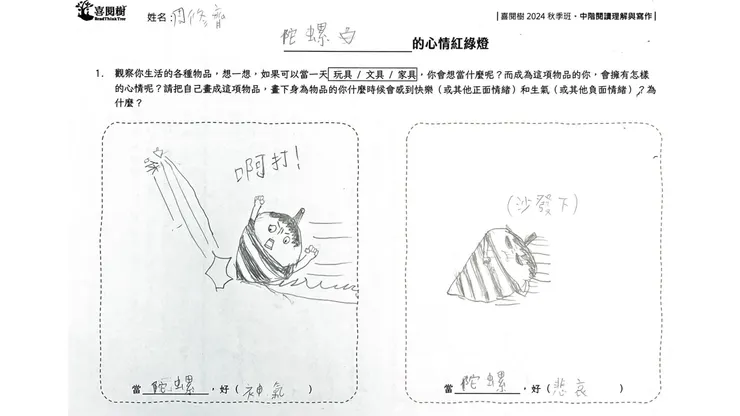 喜閱樹
ReadThinkTree
姓名：周修齊
｜喜閱樹 2024 秋季班・中階閱讀理解與寫作｜
陀螺 的心情紅綠燈
1. 觀察你生活的各種物品，想一想，如果可以當一天 玩具 / 文具 / 家具，你會想當什麼呢？而成為這項物品的你，會擁有怎樣
的心情呢？請把自己畫成這項物品，畫下身為物品的你什麼時候會感到快樂（或其他正面情緒）和生氣（或其他負面情緒）？為
什麼？
啊打！
（沙發下）
當 陀螺 ，好（神氣 ）
當 陀螺 ，好（悲哀 ）